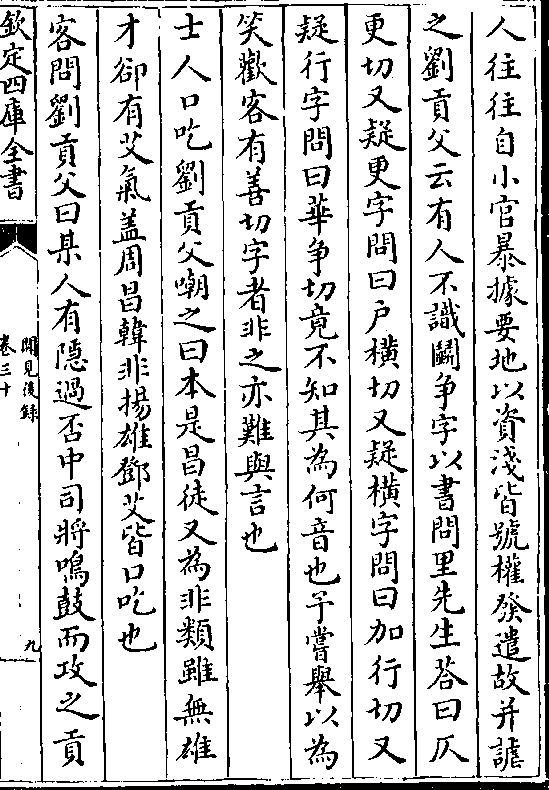 人往往自小官暴據要地以資淺皆號權發遣故并謔
之劉貢父云有人不識鬭争字以書問里先生荅曰仄
更切又疑更字問曰戶橫切又疑橫字問曰加行切又
疑行字問曰華争切竟不知其為何音也予嘗舉以為
笑歡客有善切字者非之亦難與言也
士人口吃劉貢父嘲之曰本是昌徒又為非類雖無雄
才卻有艾氣盖周昌韓非揚雄鄧艾皆口吃也
客問劉貢父曰某人有隱過否中司將鳴鼓而攻之貢
欽定四庫全書
聞見後錄
卷三十
九